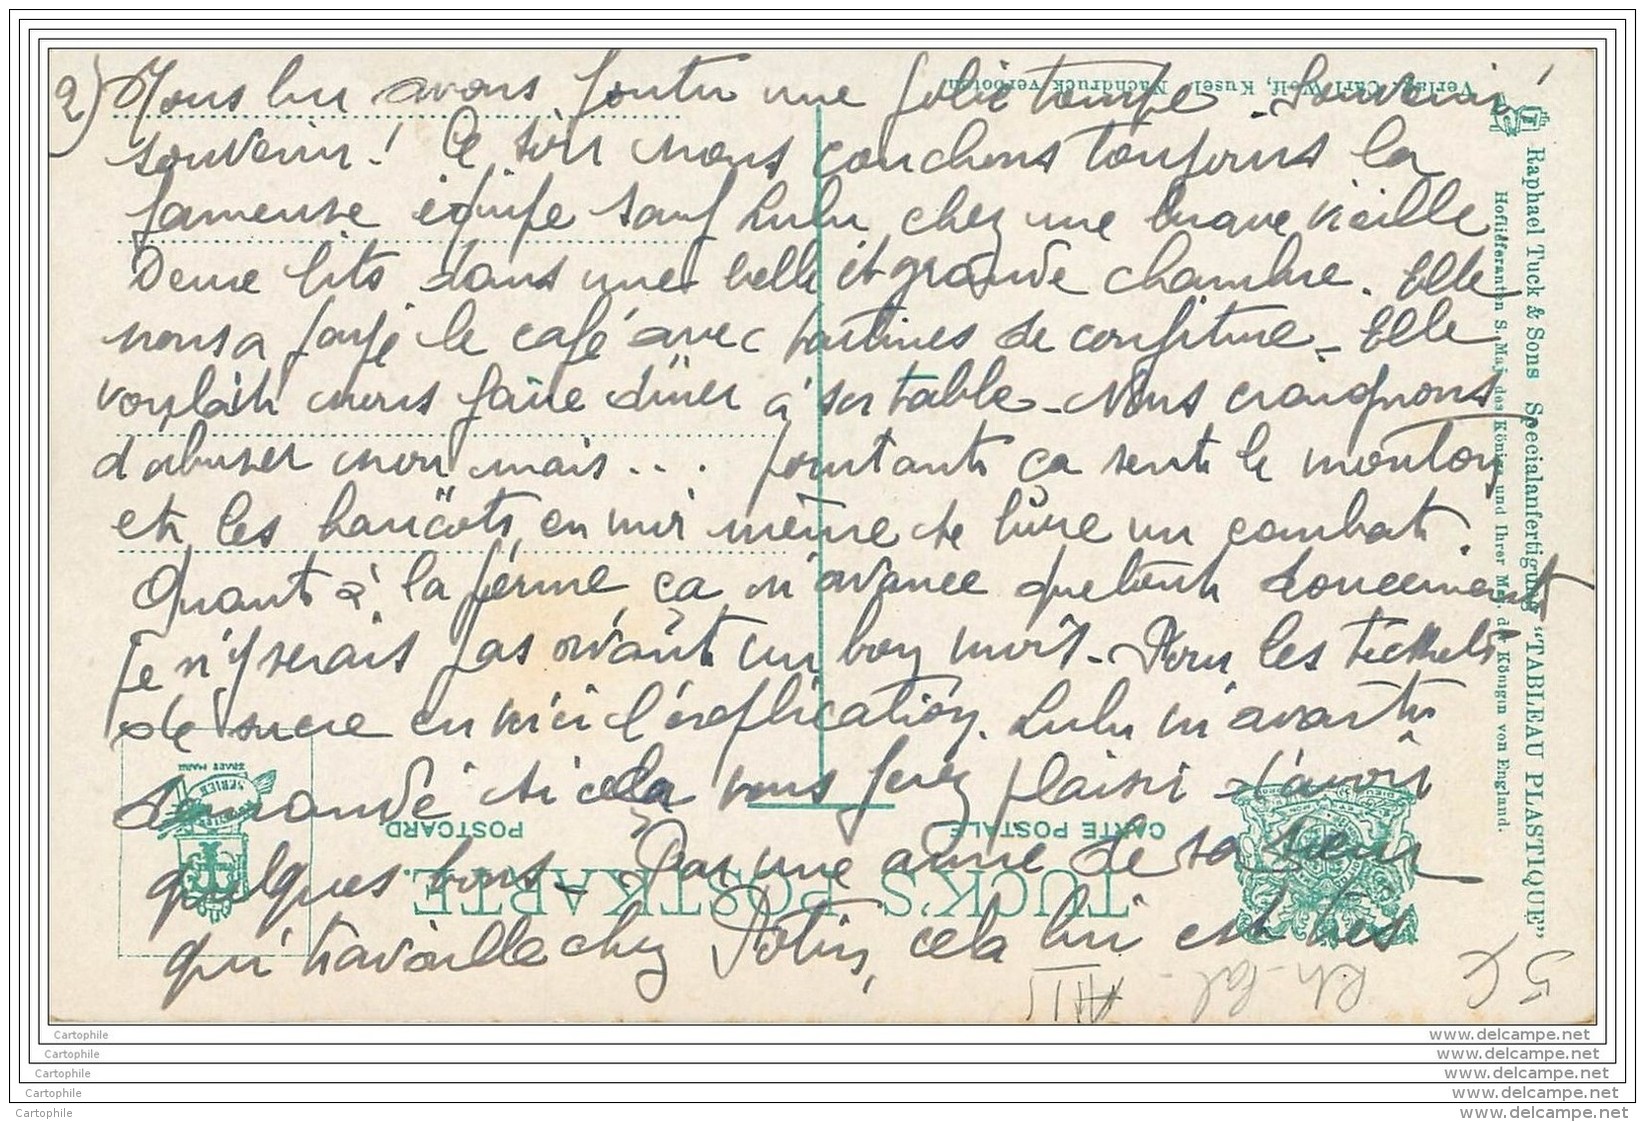 2) Nous lui avons foutu une jolie tompe. Souvenir,
souvenir ! Ce soir nous couchons toujours la
fameuse équipe sauf Lulu chez une brave vieille
Deux lits dans une belle et grande chambre. Elle
nous a payé le café avec tartines de confiture - Elle
voulait nous faire dîner à sa table - Nous craignons
d'abuser non mais . . . pourtant ça sent le mouton
et les haricots, en un mot même de livre un combat.
Quant à la ferme, ça n'avance que tout doucement
je n'y serais pas avant un bon mois - Pour les tickets
de sucre en voici l'explication. Lulu m'avait
demandé si cela vous ferez plaisir d'avoir
quelques bons - Par une amie de sa sœur
qui travaille chez Potin, cela lui est très
Verlag: Carl Welf, Kusel. Nachdruck verboten.
Raphael Tuck & Sons Specialanfertigung "TABLEAU PLASTIQUE"
Hoflieferanten S. Maj. des Königs und Ihrer Maj. der Königin von England.
TUCK'S POSTKARTE.
CARTE POSTALE
POSTCARD.
SERIEN
54
Cartophile
Cartophile
Cartophile
Cartophile
Cartophile
www.delcampe.net
www.delcampe.net
www.delcampe.net
www.delcampe.net
www.delcampe.net